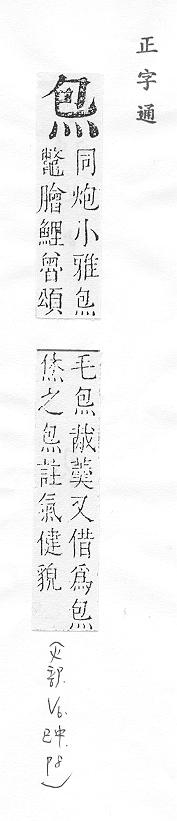 正字通
炰
同炮小雅炰
鼈膾鯉魯頌
毛炰胾羹又借爲炰
烋之炰註氣健貌
(火部. V6. 巳中. P8)